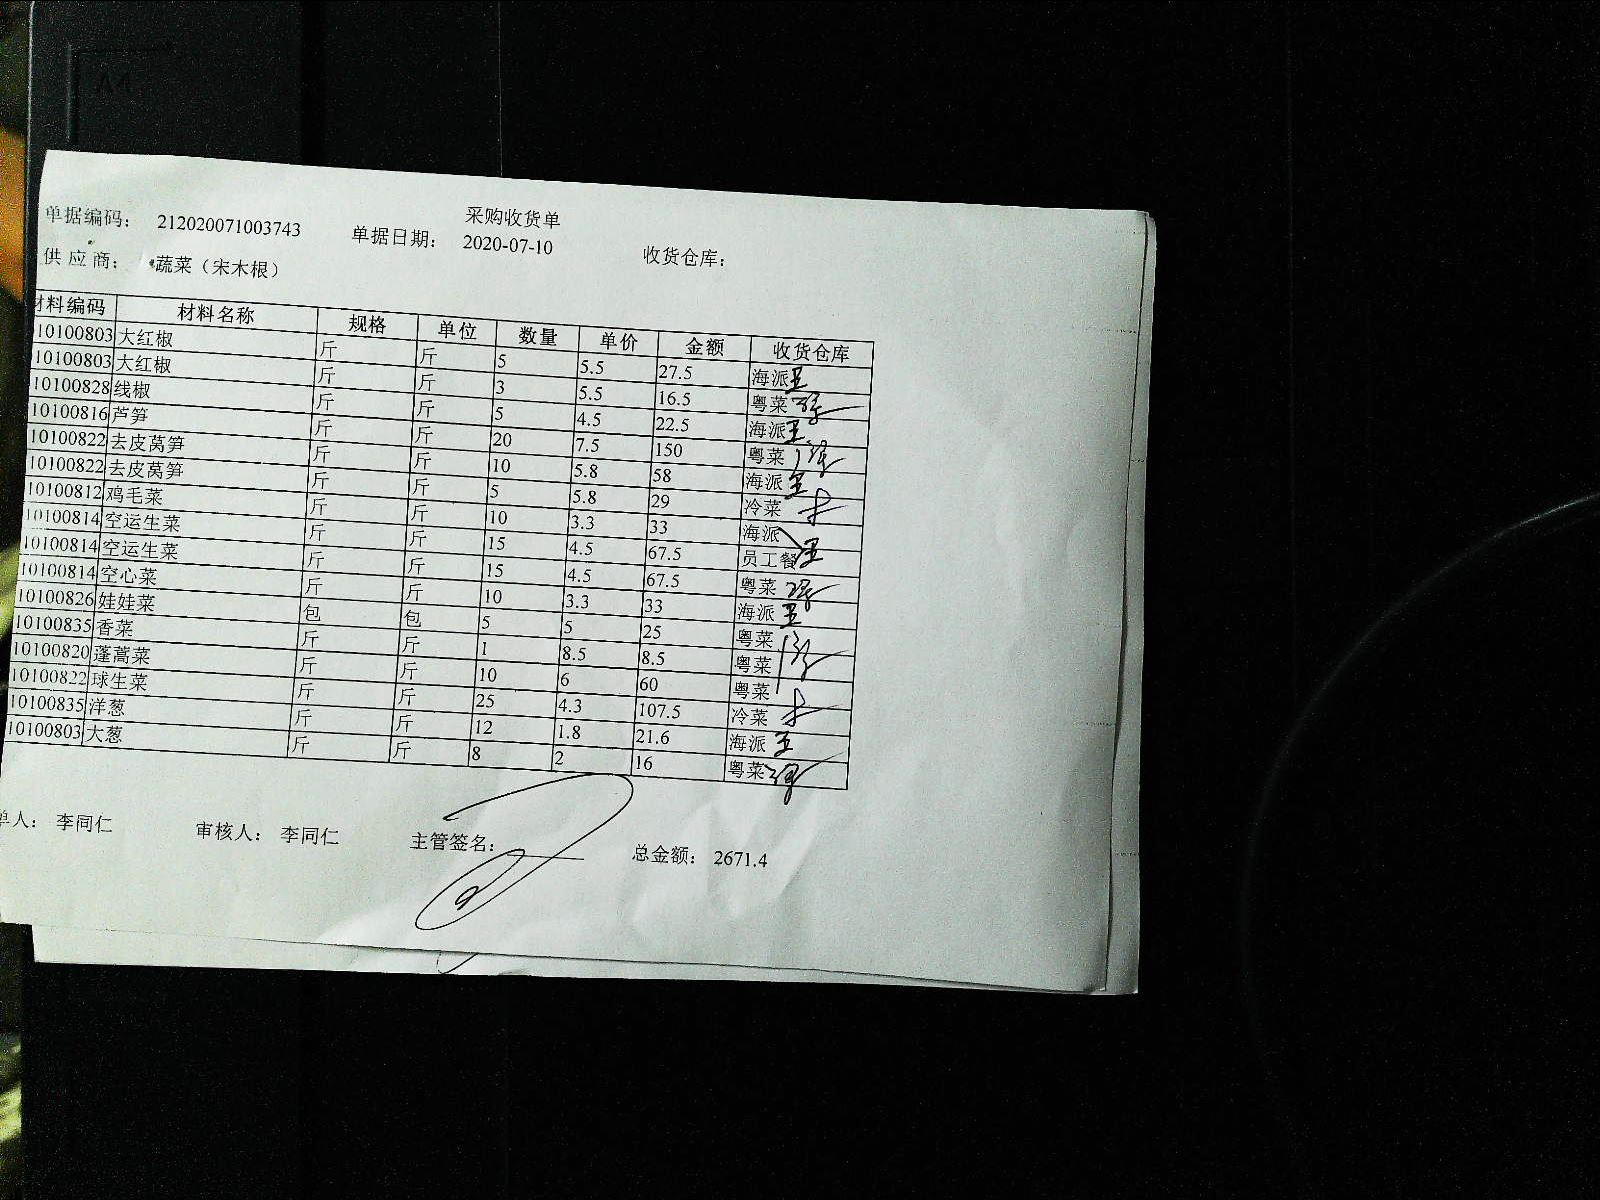 采购收货单
单据编码： 212020071003743 单据日期： 2020-07-10 收货仓库：
供 应 商： 蔬菜（宋木根）
材料编码 材料名称 规格 单位 数量 单价 金额 收货仓库
10100803 大红椒 斤 斤 5 5.5 27.5 海派
10100803 大红椒 斤 斤 3 5.5 16.5 粤菜
10100828 线椒 斤 斤 5 4.5 22.5 海派
10100816 芦笋 斤 斤 20 7.5 150 粤菜
10100822 去皮莴笋 斤 斤 10 5.8 58 海派
10100822 去皮莴笋 斤 斤 5 5.8 29 冷菜
10100812 鸡毛菜 斤 斤 10 3.3 33 海派
10100814 空运生菜 斤 斤 15 4.5 67.5 员工餐
10100814 空运生菜 斤 斤 15 4.5 67.5 粤菜
10100814 空心菜 斤 斤 10 3.3 33 海派
10100826 娃娃菜 包 包 5 5 25 粤菜
10100835 香菜 斤 斤 1 8.5 8.5 粤菜
10100820 蓬蒿菜 斤 斤 10 6 60 粤菜
10100822 球生菜 斤 斤 25 4.3 107.5 冷菜
10100835 洋葱 斤 斤 12 1.8 21.6 海派
10100803 大葱 斤 斤 8 2 16 粤菜
单人： 李同仁 审核人： 李同仁 主管签名： 总金额： 2671.4